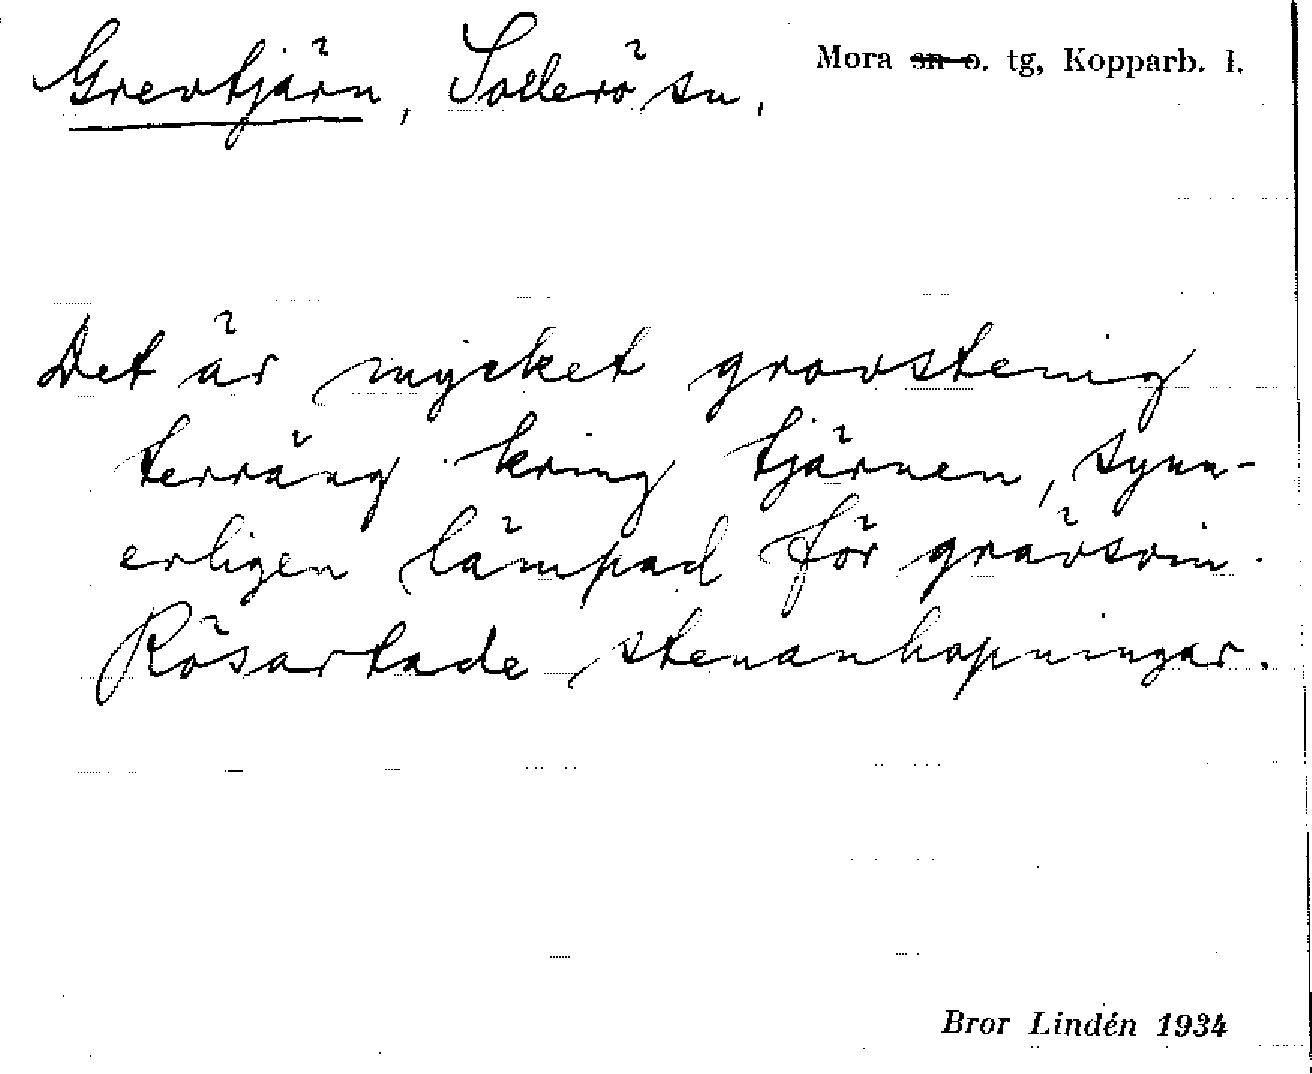 Grevtjärn, Sollerö sn.
Mora sn o. tg, Kopparb. l.
Det är mycket grovstenig
terräng kring tjärnen, synn-
erligen lämpad för grävsvin.
Rösartade stenanhopningar.
Bror Lindén 1934